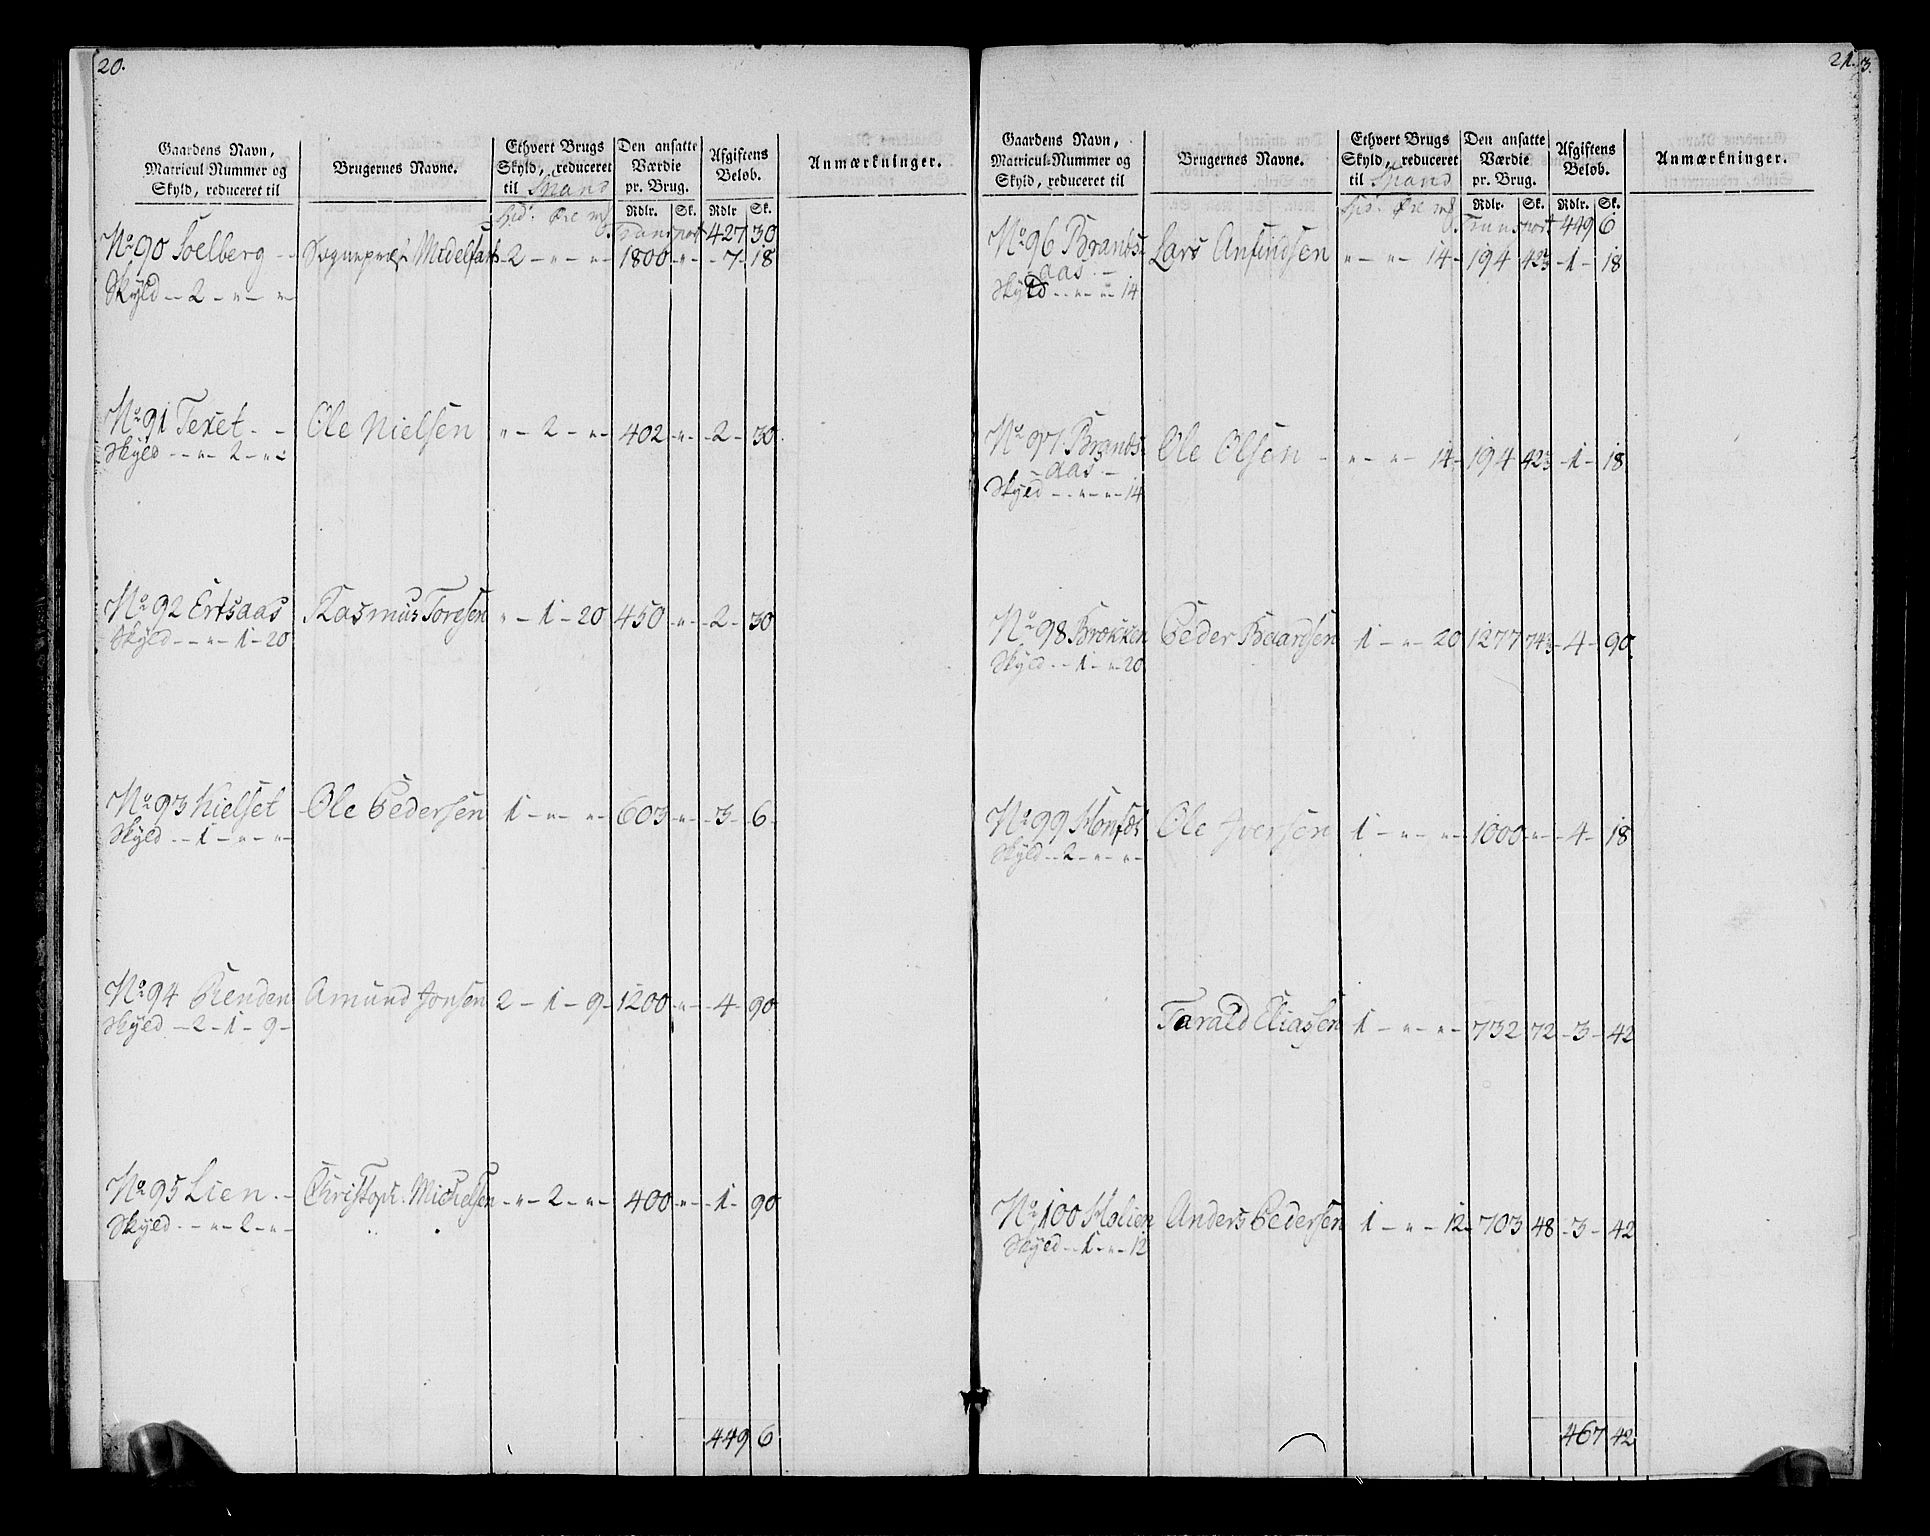 20.
Gaardens Navn, Matricul-Nummer og Skyld, reduceret til | Brugernes Navne. | Ethvert Brugs Skyld, reduceret til Spand | Den ansatte Værdie pr. Brug. | Afgiftens Beløb. | Anmærkninger.
Spd. Øre mk | Rdlr. Sk. | Rdlr Sk.
Transport 427 30
No 90 Soelberg - - Sognepræst Midelfart 2 - " - " - 1800 - " - 7 - 18
Skyld - 2 - " - "
No 91 Texet - - Ole Nielsen " - 2 - " - 402 - " - 2 - 30.
Skyld - - " - 2 - " -
No 92 Ertsaas Rasmus Toresen " - 1 - 20 450 - " - 2 - 30
Skyld - - " - 1 - 20
No 93 Kielset Ole Pedersen 1 - " - " - 603 - " - 3 - 6 -
Skyld - - 1 - " - "
No 94 Renden Amund Jonsen 2 - 1 - 9 - 1200 - " - 4 - 90
Skyld - 2 - 1 - 9 -
No 95 Lien - - Christoph: Michelsen - " - 2 - " - 400 - " - 1 - 90
Skyld - - " - 2 - " -
449 6
21. 3.
Gaardens Navn, Matricul-Nummer og Skyld, reduceret til | Brugernes Navne. | Ethvert Brugs Skyld, reduceret til Spand | Den ansatte Værdie pr. Brug. | Afgiftens Beløb. | Anmærkninger.
Spd. Øre mk | Rdlr. Sk. | Rdlr. Sk.
Transport 449 6
No 96 Brands- Lars Anfindsen " - " - 14 - 194 - 1 - 18
aas. -
Skyld - - " - " 14
No 97 Brands- Ole Olsen - " - " - 14 - 194 - 1 - 18
aas -
Skyld - - " - " - 14
No 98 Brøkken Peder Baardsen 1 - " - 20 1277 - 4 - 90.
Skyld - - 1 - " - 20
No 99 Ole Iversen 1 - " - " - 1000 - " - 4 - 18
Skyld - - 2 - " - " -
Tarald Eliassen 1 - " - " - 732 72 - 3 - 42
No 100 Anders Pedersen 1 - " - 12 - 703 48 - 3 - 42
Skyld - - 1 - " - 12
467 42